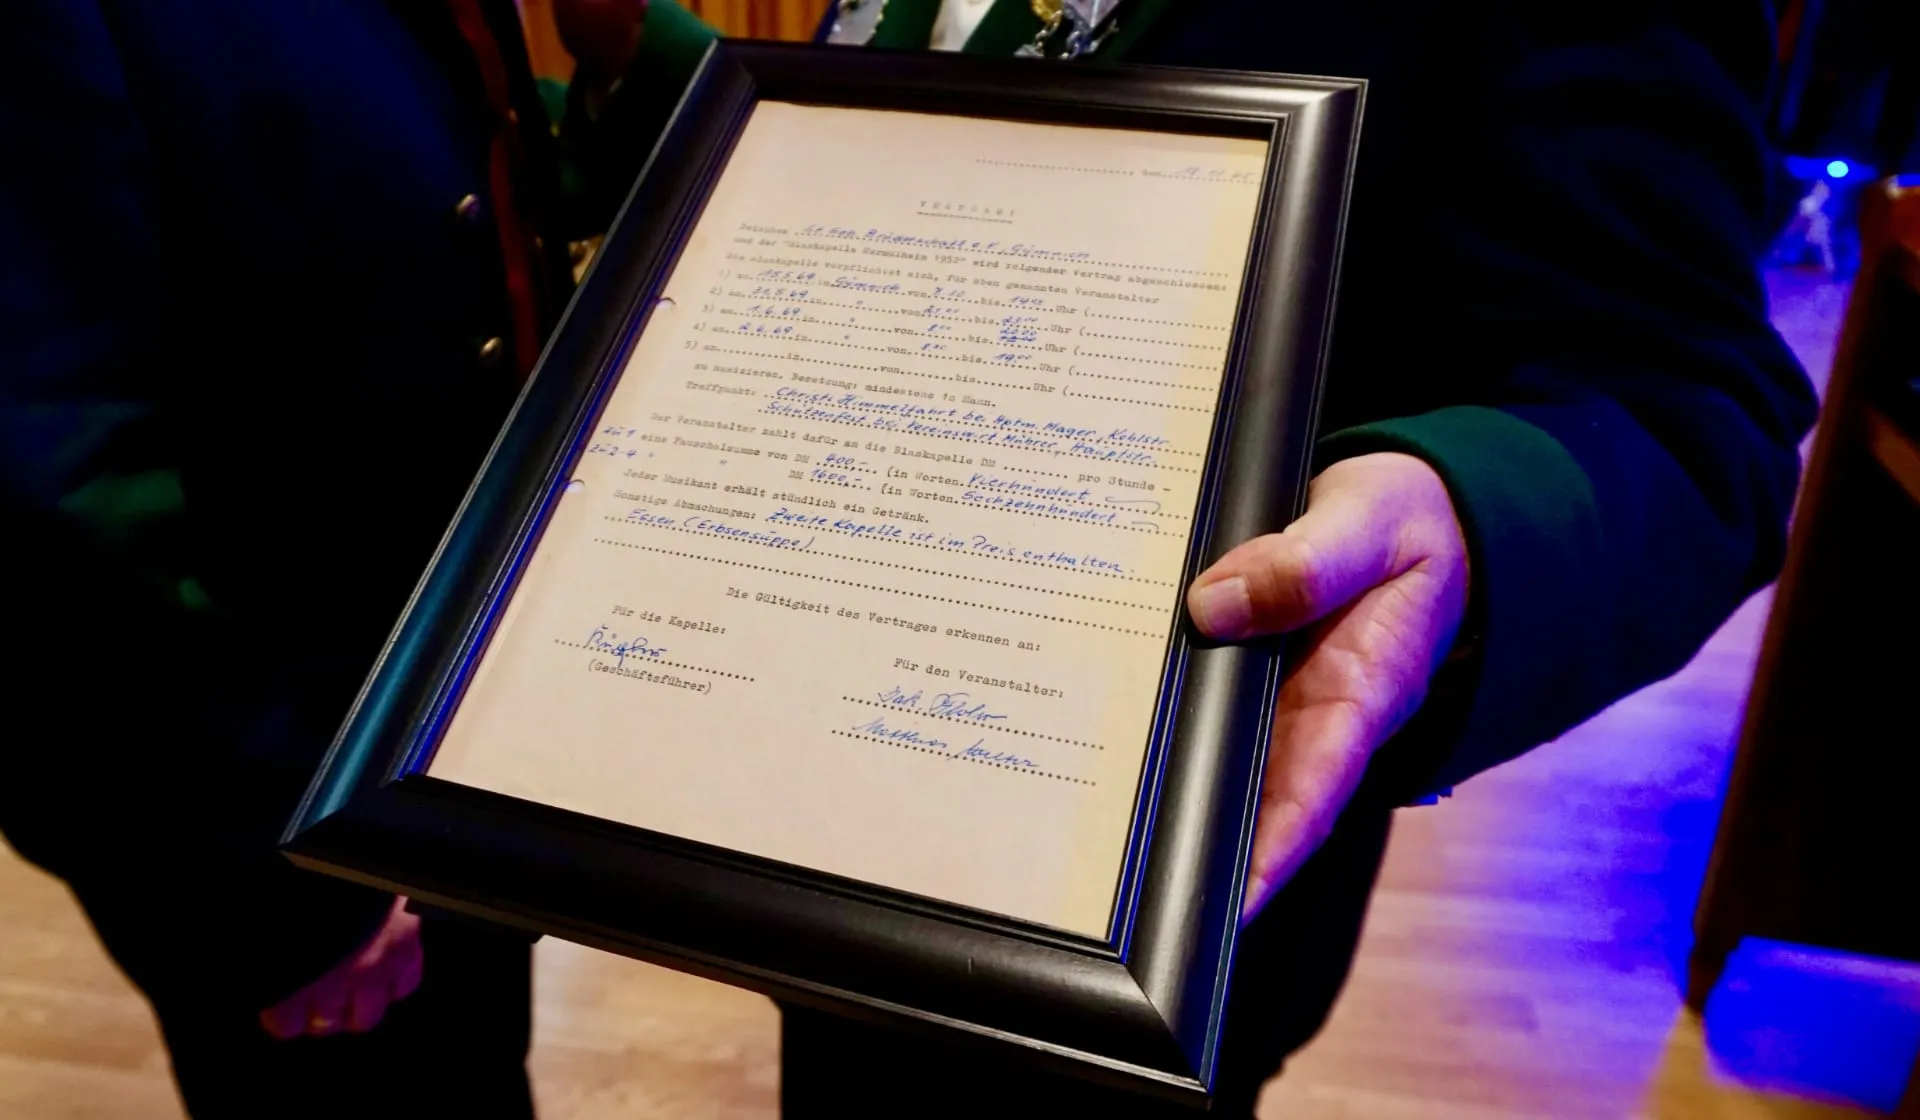 ........................ den..19.11.
VERTRAG!
Zwischen ..St. Seb. Bruderschaft e.V., Gymnich........
und der "Blaskapelle Hermülheim 1952" wird folgender Vertrag abgeschlossen:
Die Blaskapelle verpflichtet sich, für oben genannten Veranstalter
1) am..15.5.69..in..Gymnich..von..7.10..bis..14..Uhr (..........
2) am..31.5.69..in....."......von..21.00..bis..23.00..Uhr (..........
3) am..1.6.69..in....."......von..8.00..bis..20.00..Uhr (..........
4) am..2.6.69..in....."......von..8.30..bis..19.00..Uhr (..........
5) am..........in..........von........bis........Uhr (..........
zu musizieren. Besetzung: mindestens 10 Mann.
Treffpunkt: ..Christi Himmelfahrt bei Hptm. Mager, Kohlstr.
Schützenfest bei Vereinswirt Möhrer, Hauptstr.
Der Veranstalter zahlt dafür an die Blaskapelle DM ......... pro Stunde -
zu 1 eine Pauschalsumme von DM ..400,-.. (in Worten..Vierhundert..
zu 2-4 " " DM ..1600,-.. (in Worten..Sechzehnhundert..
Jeder Musikant erhält stündlich ein Getränk.
Sonstige Abmachungen: Zweite Kapelle ist im Preis enthalten.
Essen (Erbsensuppe)
Die Gültigkeit des Vertrages erkennen an:
Für die Kapelle:
Für den Veranstalter:
(Geschäftsführer)
Jak.
Matthias